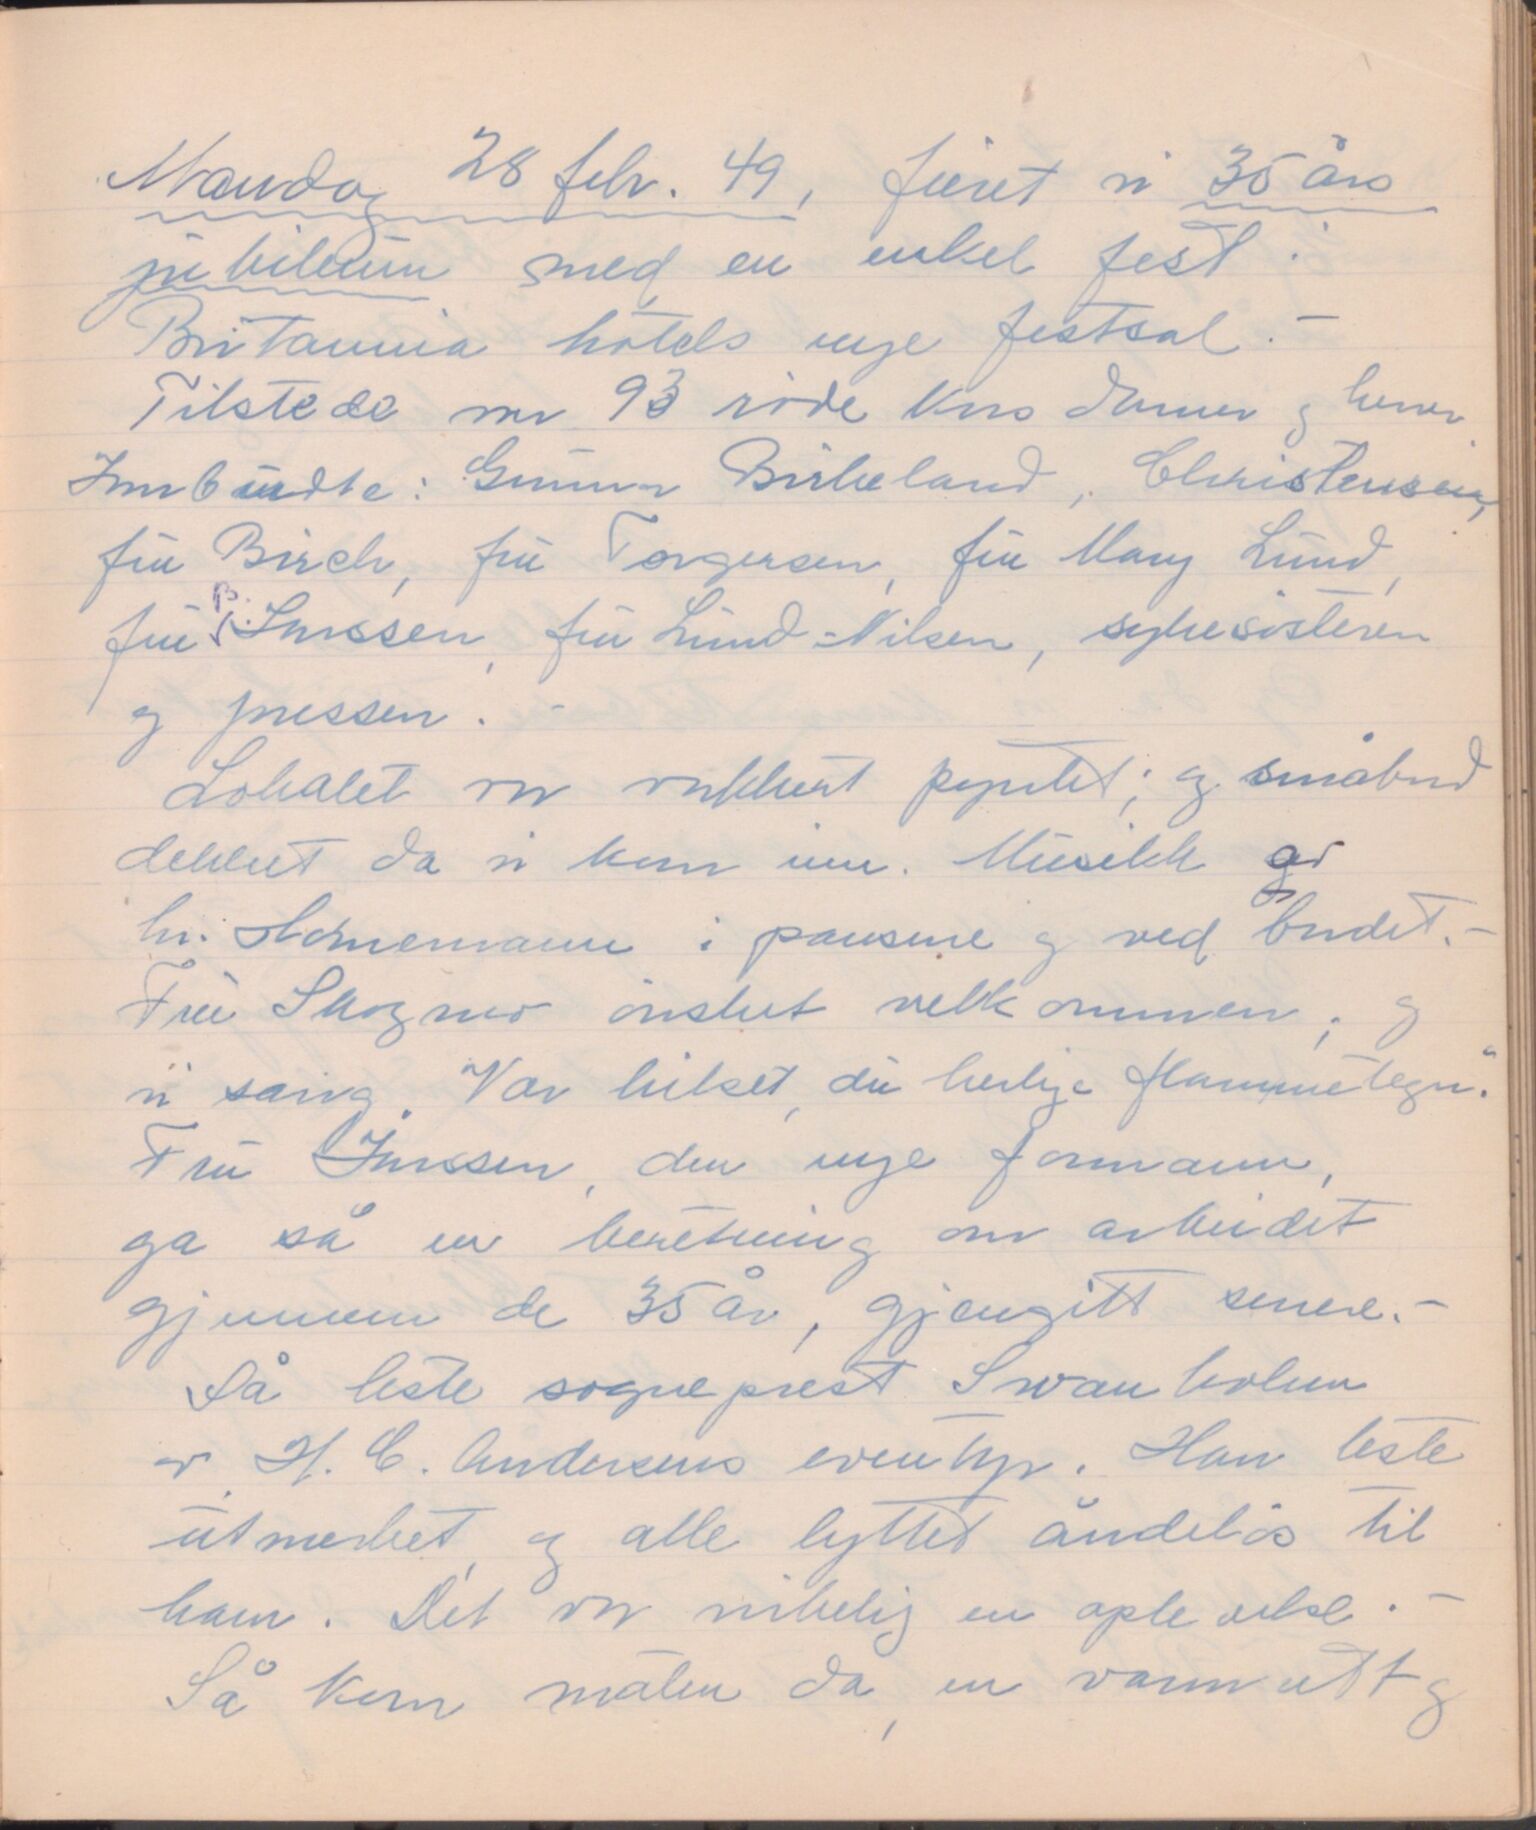 Mandag 28 febr. 49, feiret vi 35 års
jubileum med en enkel fest i
Britannia hotels nye festsal. –
Tilstede var 93 røde kors damer og herrer
Innbudte: Gunnar Birkeland, Christensen,
fru Birch, fru Torgersen, fru Mary Lund,
fru B. Jenssen, fru Lund-Nilsen, sykesøsteren
og pressen. –
Lokalet var vakkert pyntet, og småbord
dekket da vi kom inn. Musikk av
hr. Hornemann i pausene og ved bordet. –
Fru Skogmo ønsket velkommen, og
vi sang "Vær hilset, du herlige flammetegn."
Fru Jenssen, den nye formann,
ga så en beretning om arbeidet
gjennem de 35 år, gjengitt senere. –
Så leste sogneprest Svanholm
av H. C. Andersens eventyr. Han leste
utmerket, og alle lyttet åndeløs til
ham. Det var virkelig en oplevelse. –
Så kom maten da, en varm rett og